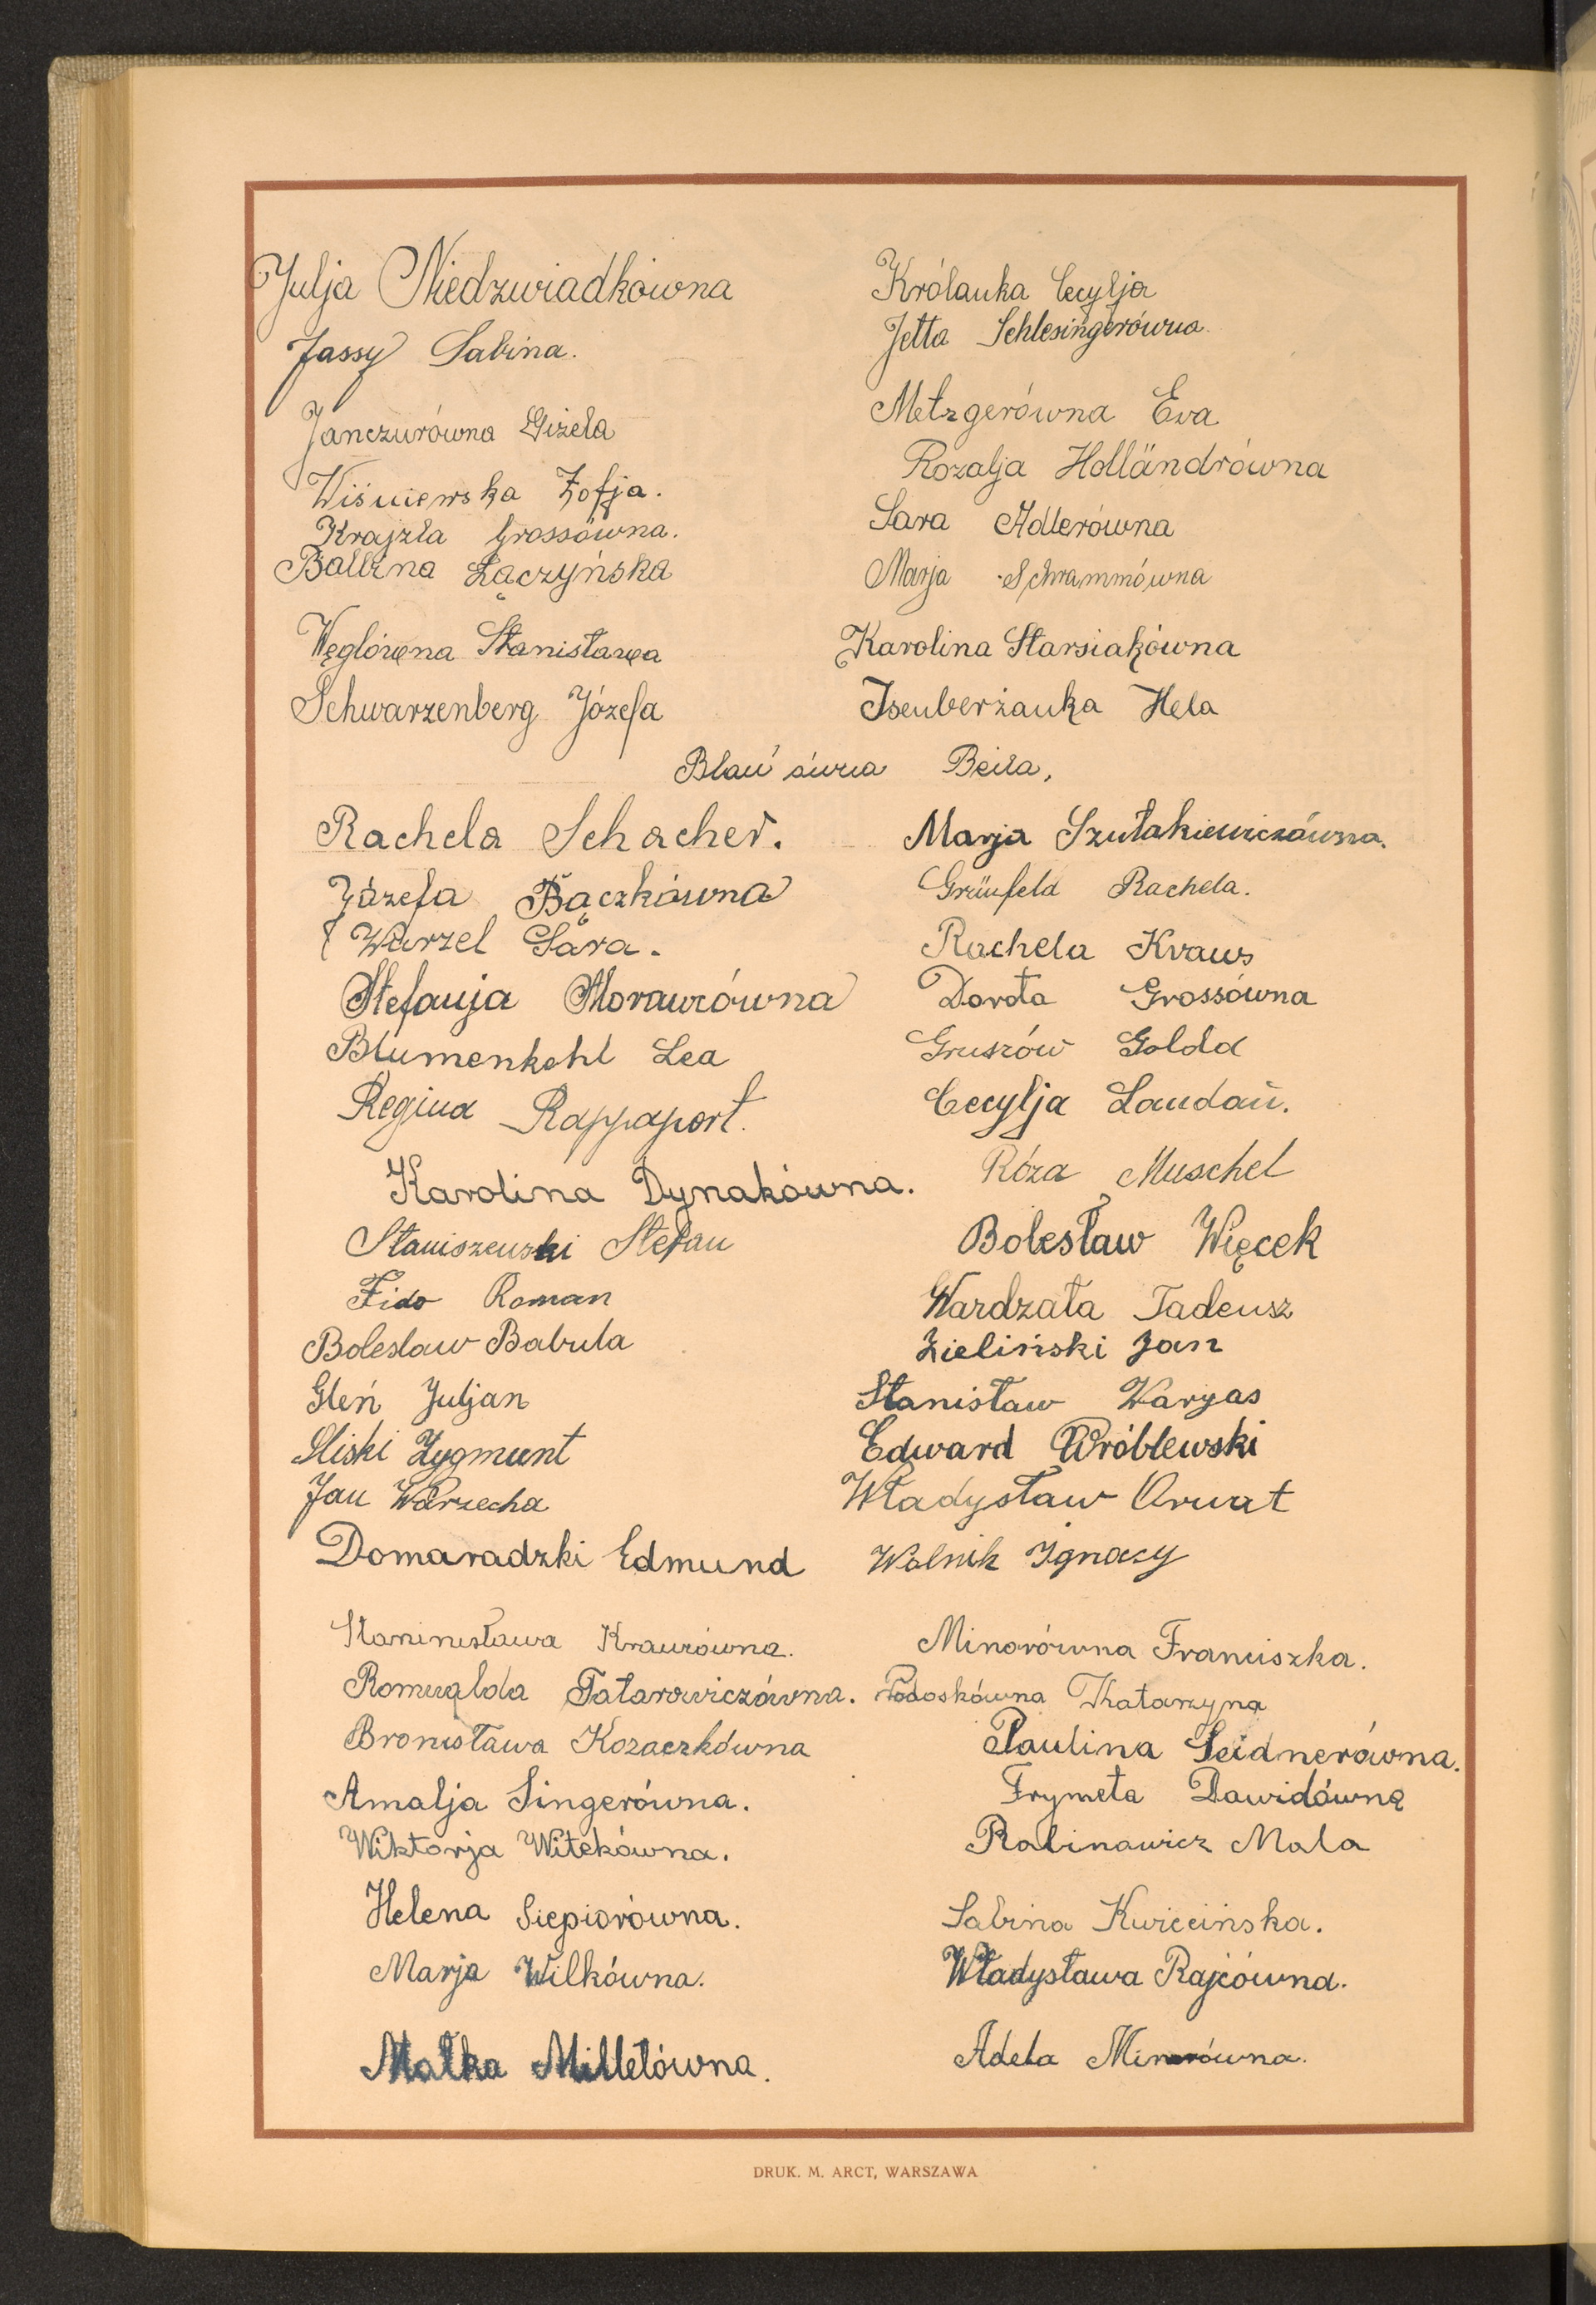 Julja Niedzwiadkówna
Jassy Sabina.
Janczurówna Gizela
Wiśniewska Zofja.
Krajzla Grossówna.
Balbina Łączyńska
Węglówna Stanisława
Schwarzenberg Józefa
Królanka Cecylja
Jetta Schlesingerówna.
Metzgerówna Eva
Rozalja Holländrówna
Sara Adlerówna
Marja Schrammówna
Karolina Starsiakówna
Isenberżanka Hela
Blau'ówna Beila,
Rachela Schacher.
Józefa Bączkówna
Wurzel Sara.
Stefanja Morawzówna
Blumenkehl Lea
Regina Rappaport.
Karolina Dynakówna.
Staniszewski Stefan
Fido Roman
Boleslaw Babula
Gleń Juljan
Sliski Zygmunt
Jan Warzecha
Domaradzki Edmund
Marja Szutakiewiczówna.
Grünfeld Rachela.
Rachela Kraus
Dorota Grossówna
Gruszów Golda
Cecylja Landau.
Róza Muschel
Bolesław Więcek
Wardzała Tadeusz
Zieliński Jan
Stanisław Wargas
Edward Wróblewski
Władysław Orwat
Wolnik Ignacy
Staninisława Krauzówna.
Romualda Tatarowiczówna.
Bronisława Kozaczkówna
Amalja Singerówna.
Wiktorja Witekówna.
Helena Siepiorówna.
Marja Wilkówna.
Małka Milletówna.
Minorówna Franciszka.
Podoskówna Katarzyna
Paulina Seidnerówna.
Frymeta Dawidówna
Rabinowicz Mala
Sabina Kwiecińska.
Władysława Rajcówna.
Adela Minorówna.
DRUK. M. ARCT, WARSZAWA